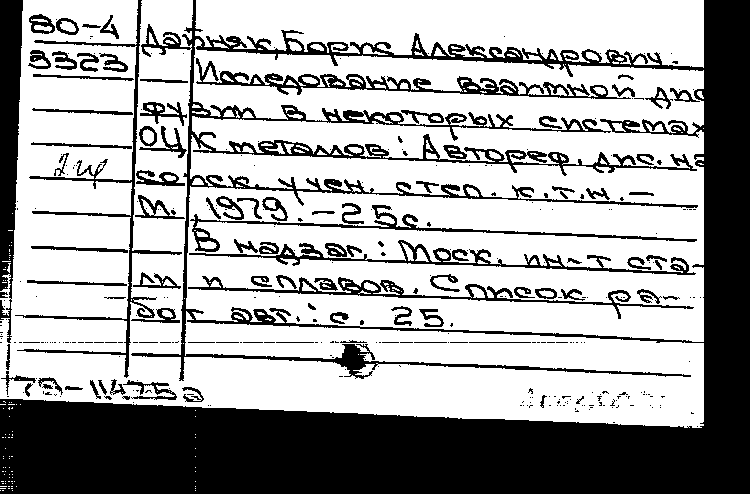 80-4
3323
Дайняк, Борис Александрович.
Исследование взаимной диф
фузии в некоторых системах
ОЦК металлов : Автореф. дис. на
соиск. учен. степ. к.т.н. –
М., 1979. – 25 с.
В надзаг. : Моск. ин-т ста-
ли и сплавов. Список ра-
бот авт. : с. 25.
79-11475а